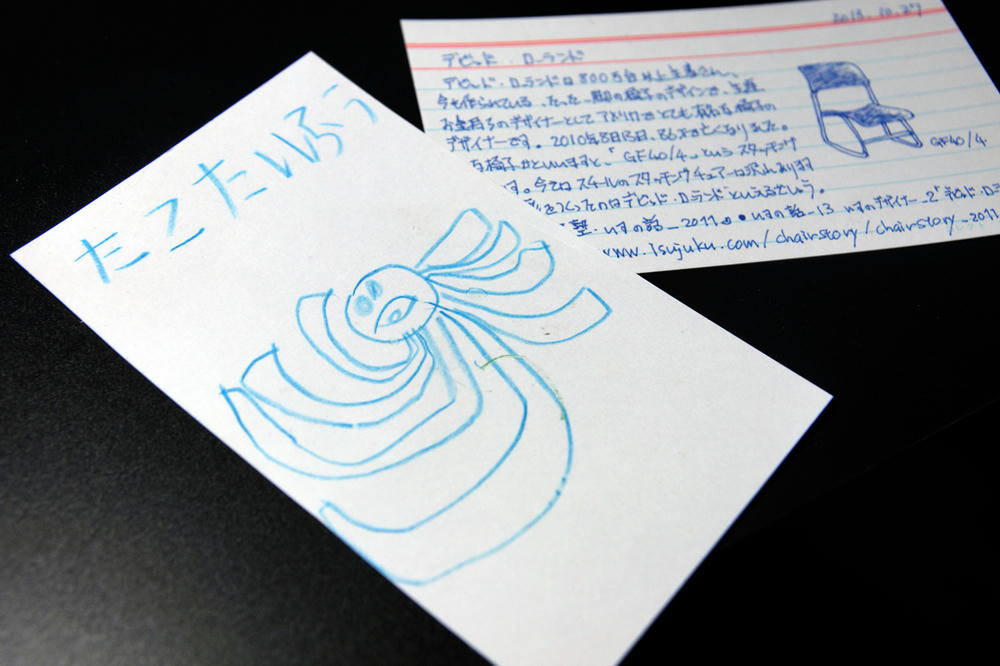 たこ たいろう
2013.10.27
デビッド・ローランド
デビッド・ローランドは800万台以上生産され、
今も作られている、たった一脚の椅子のデザインで、生涯
お金持ちのデザイナーとして アメリカではとても有名な椅子の
デザイナーです。2010年8月13日、86才で亡くなりました。
な椅子かといいますと、「GF40/4」というスタッキング
す。今ではスチールのスタッキングチェアーは沢山あります
をつくったのはデビッド・ローランドといえるでしょう。
GF40/4
塾・いすの話_2011 ●いすの話-13 いすのデザイナー_2" デビッド・ロー
www.isujuku.com/chairstory/chairstory_2011